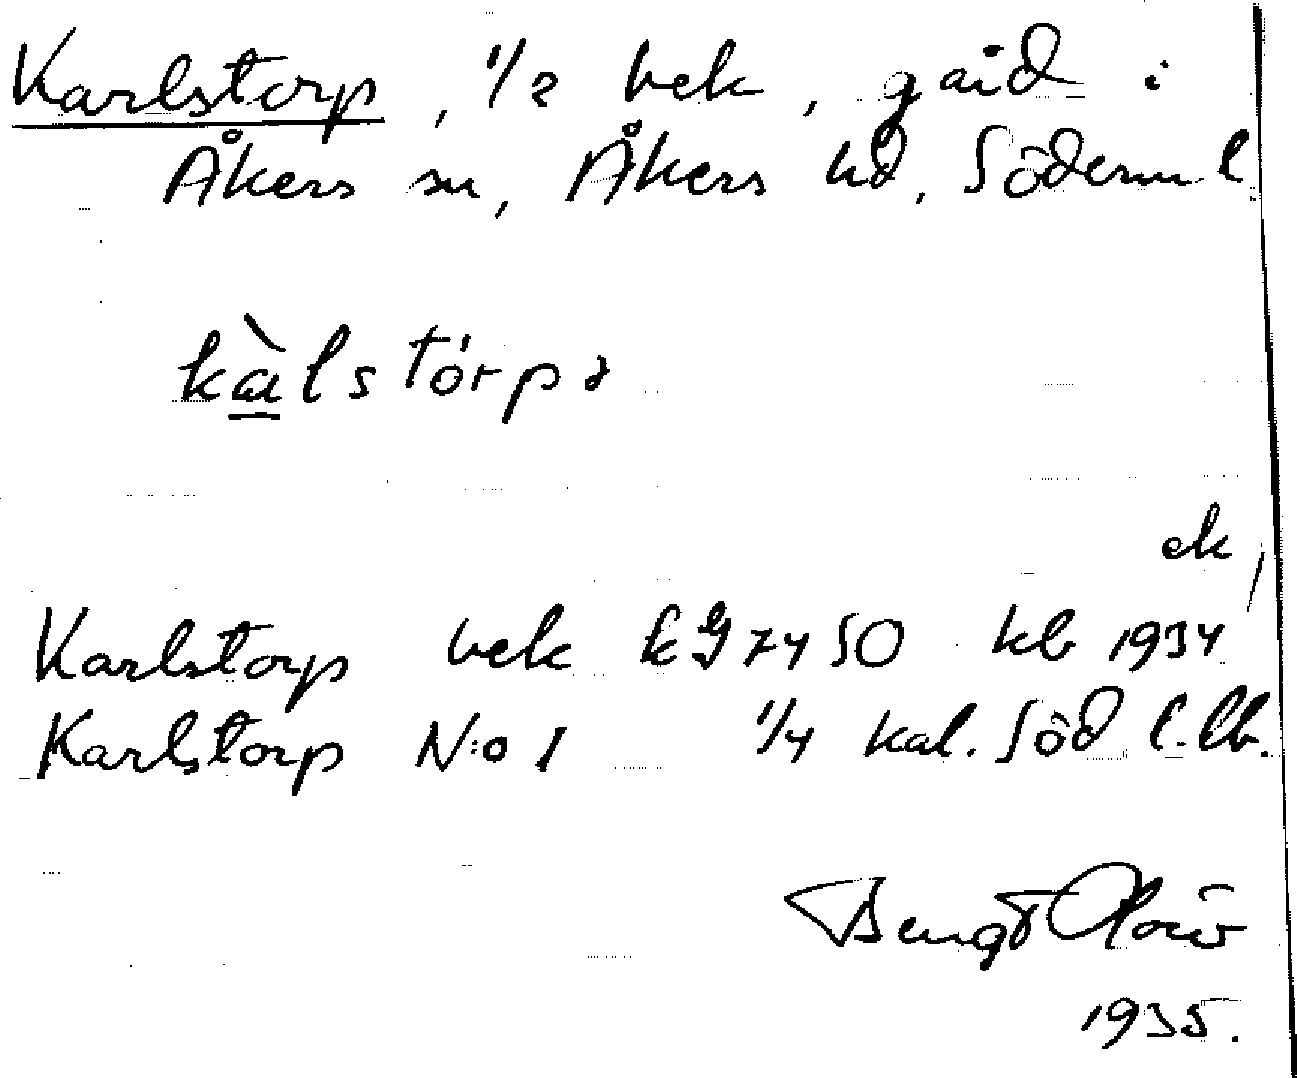 Karlstorp, 1/2 bek, gård i
Åkers sn, Åkers hd, Söderm l
kàlstórpə
ek
Karlstorp bek kG 7450 kb 1934
Karlstorp N:o 1 1/4 kal. Söd l. lb.
Bengt
1935.